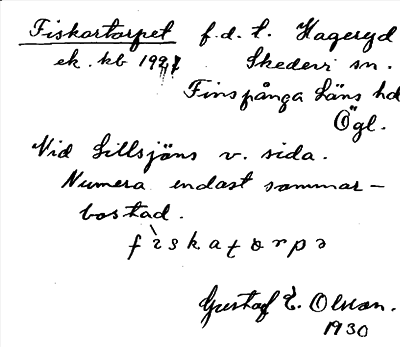 Fiskartorpet f.d. t. Hageryd
ek. kb 1927 Skedevi sn.
Finspånga läns hd
Ögl.
Vid Lillsjöns v. sida.
Numera endast sommar-
bostad.
Gustaf E. Olsson.
1930